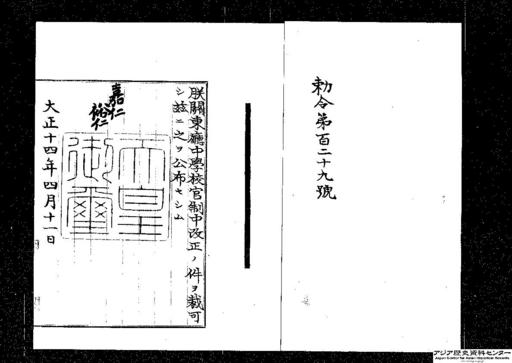 勅令第百二十九號
朕關東廳中學校官制中改正ノ件ヲ裁可
シ玆ニ之ヲ公布セシム
嘉仁
裕仁
天皇
御璽
大正十四年四月十一日
アジア歴史資料センター
Japan Center for Asian Historical Records